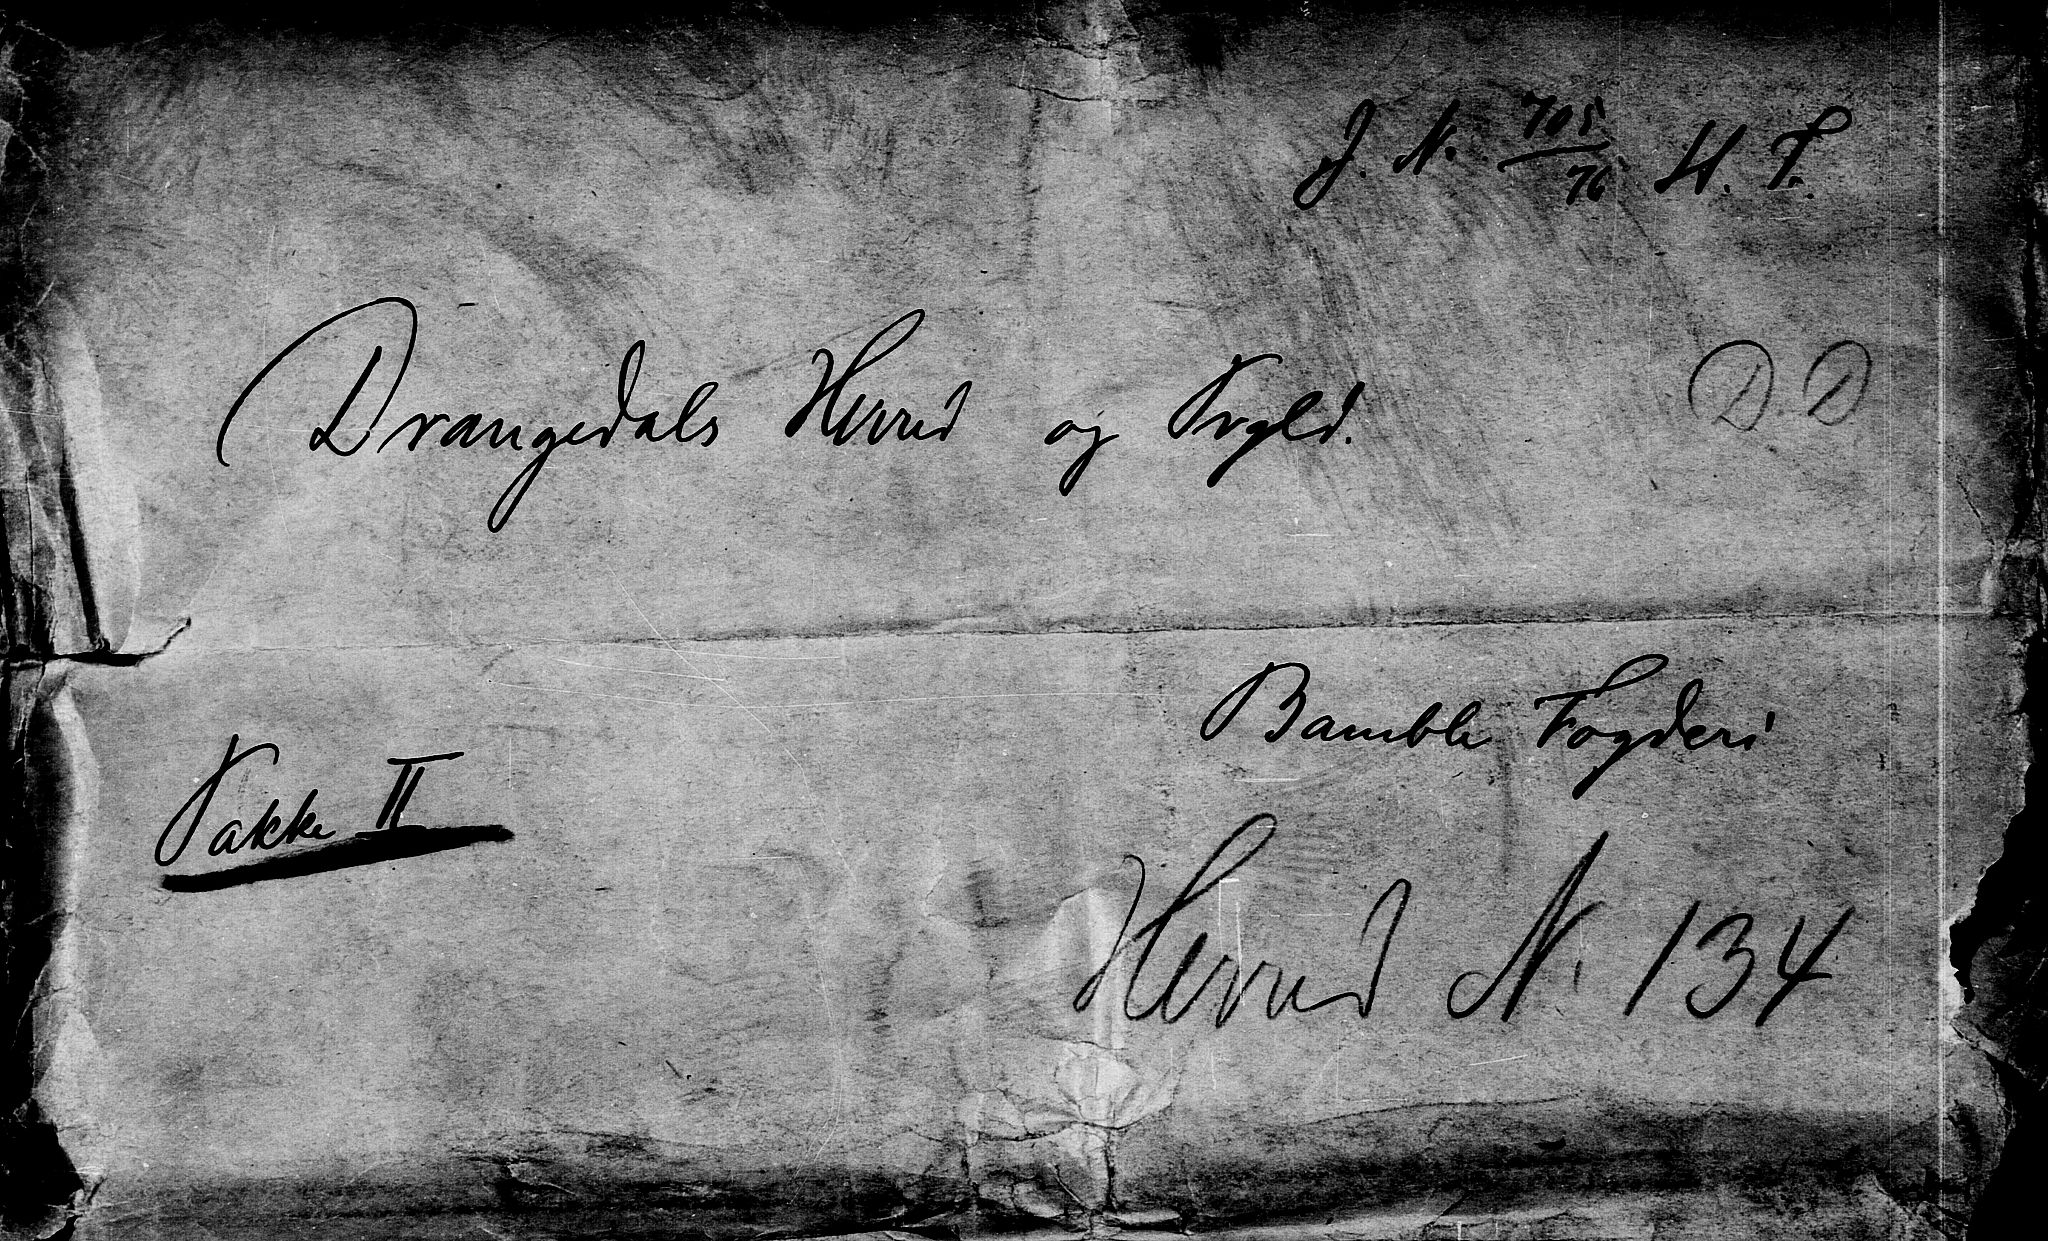 J. N. 705/76 H. T.
Drangedals Herred og Prgld. D. D
Bamble Fogderi
Pakke II
Herred N. 134